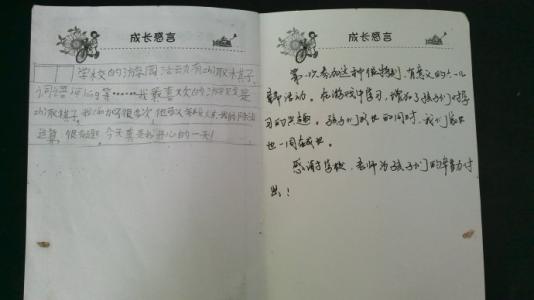 成长感言
学校的游园活动有小小取棋子,
词语pk等……我最喜欢的游戏是
小小取棋子,
运算,很有趣。今天真是开心的一天!
成长感言
第一次参加这种很特别,有意义的六一儿
童节活动。在游戏中学习,增加了孩子们学
习的兴趣。孩子们成长的同时,我们家长
也一同在成长。
感谢学校、老师为孩子们的辛勤付
出!